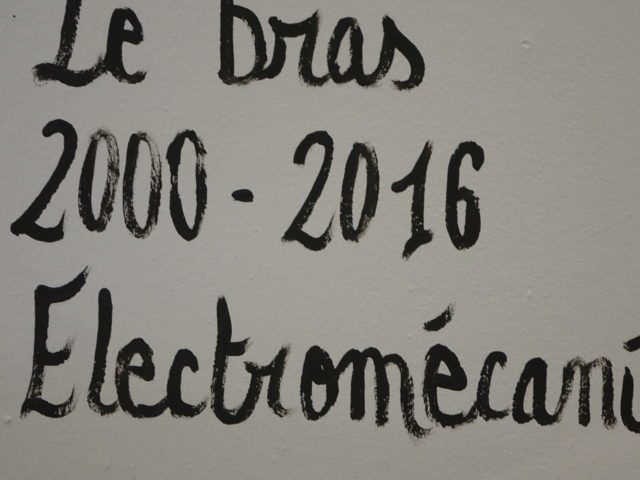 Le bras
2000-2016
Electromécani